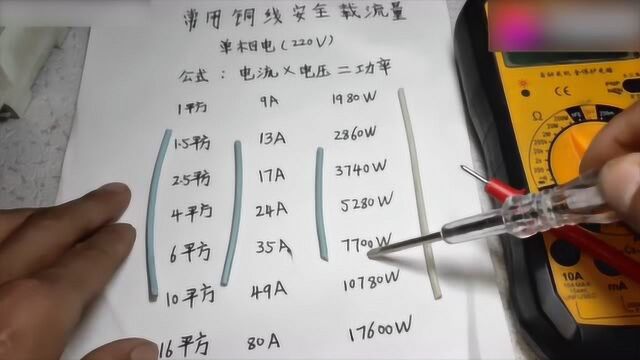 常用铜线安全载流量
单相电(220V)
公式:电流×电压=功率
1平方 9A 1980W
1.5平方 13A 2860W
2.5平方 17A 3740W
4平方 24A 5280W
6平方 35A 7700W
10平方 49A 10780W
16平方 80A 17600W
10A